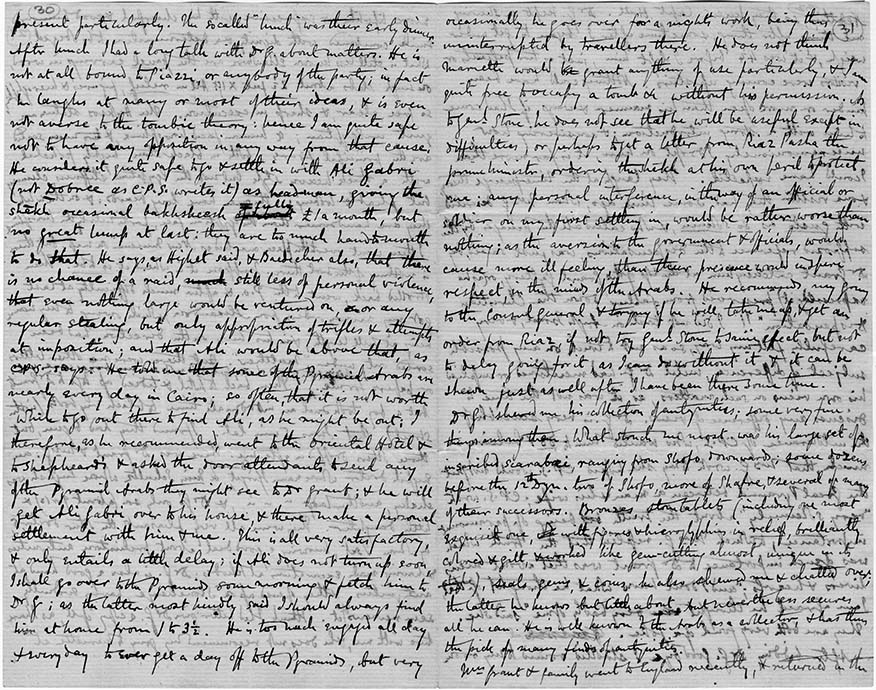 30
present particularly. The so called "lunch" was their early dinner.
After lunch I had a long talk with Dr G. about matters. He is
not at all bound to Piazzi, or anybody of the party; in fact
he laughs at many or most of their ideas, & is even
not averse to the tombic theory: hence I am quite safe
not to have any opposition in any way from that cause.
He considers it quite safe to go & settle in with Ali Gabri
(not Dobree as C.P.S. writes it) as headman, giving the
shekh occasional bakhsheesh £1 a month, but
no great lump at last: they are too much hand to mouth
to do that. He says, as Highet said, & Baedecker also, that there
is no chance of a raid, much still less of personal violence,
that even nothing large would be ventured on, or any
regular stealing, but only appropriation of trifles & attempts
at imposition; and that Ali would be above that, as
C.P.S. says. He told me that some of the Pyramid Arabs are in
nearly every day in Cairo; so often, that it is not worth
while to go out there to find Ali, as he might be out; I
therefore, as he recommended, went to the Oriental Hotel &
to Shepheard's & asked the door attendants to send any
of the Pyramid Arabs they might see to Dr Grant; & he will
get Ali Gabri over to his house, & there make a personal
settlement with him & me. This is all very satisfactory,
& only entails a little delay; if Ali does not turn up soon,
I shall go over to the Pyramids some morning & fetch him to
Dr G; as the latter most kindly said I should always find
him at home from 1 to 3½. He is too much engaged all day
& every day to ever get a day off to the Pyramids, but very
31
occasionally he goes over for a night's work, being then
uninterrupted by travellers there. He does not think
Mariette would grant anything of use particularly, & I am
quite free to occupy a tomb &c without his permission. As
to Genl Stone, he does not see that he will be useful except in
difficulties) or perhaps to get a letter from Riaz Pasha the
prime minister, ordering the shekh at his own peril to protect
me; any personal interference, in the way of an official or
soldier on my first settling in, would be rather worse than
nothing; as the aversion to the government & officials, would
cause more ill feeling, than their presence would inspire
respect in the minds of the Arabs. He recommends my going
to the Consul general & trying if he will take me up, & get an
order from Riaz, if not try Genl Stone to same effect; but not
to delay going for it, as I can do without it & it can be
shewn just as well after I have been there some time.
Dr G. shewed me his collection of antiquities; some very fine
things among them. What struck me most was his large set of
inscribed scarabaei ranging from Shofo, downwards; some dozens
before the 12th Dyn. two of Shofo, more of Shafre, & several or many
of their successors. Bronzes, stone tablets (including one most
exquisite one with figures & hieroglyphics in relief, brilliantly
colored & gilt, worked like gem-cutting almost, unique in its
), seals, gems, & coins, he also shewed me & chatted over;
the latter he knows but little about, but nevertheless secures
all he can. He is well known to the Arabs as a collector, & has thus
the pick of many finds of antiquities.
Mrs Grant & family went to England recently, & returned in the